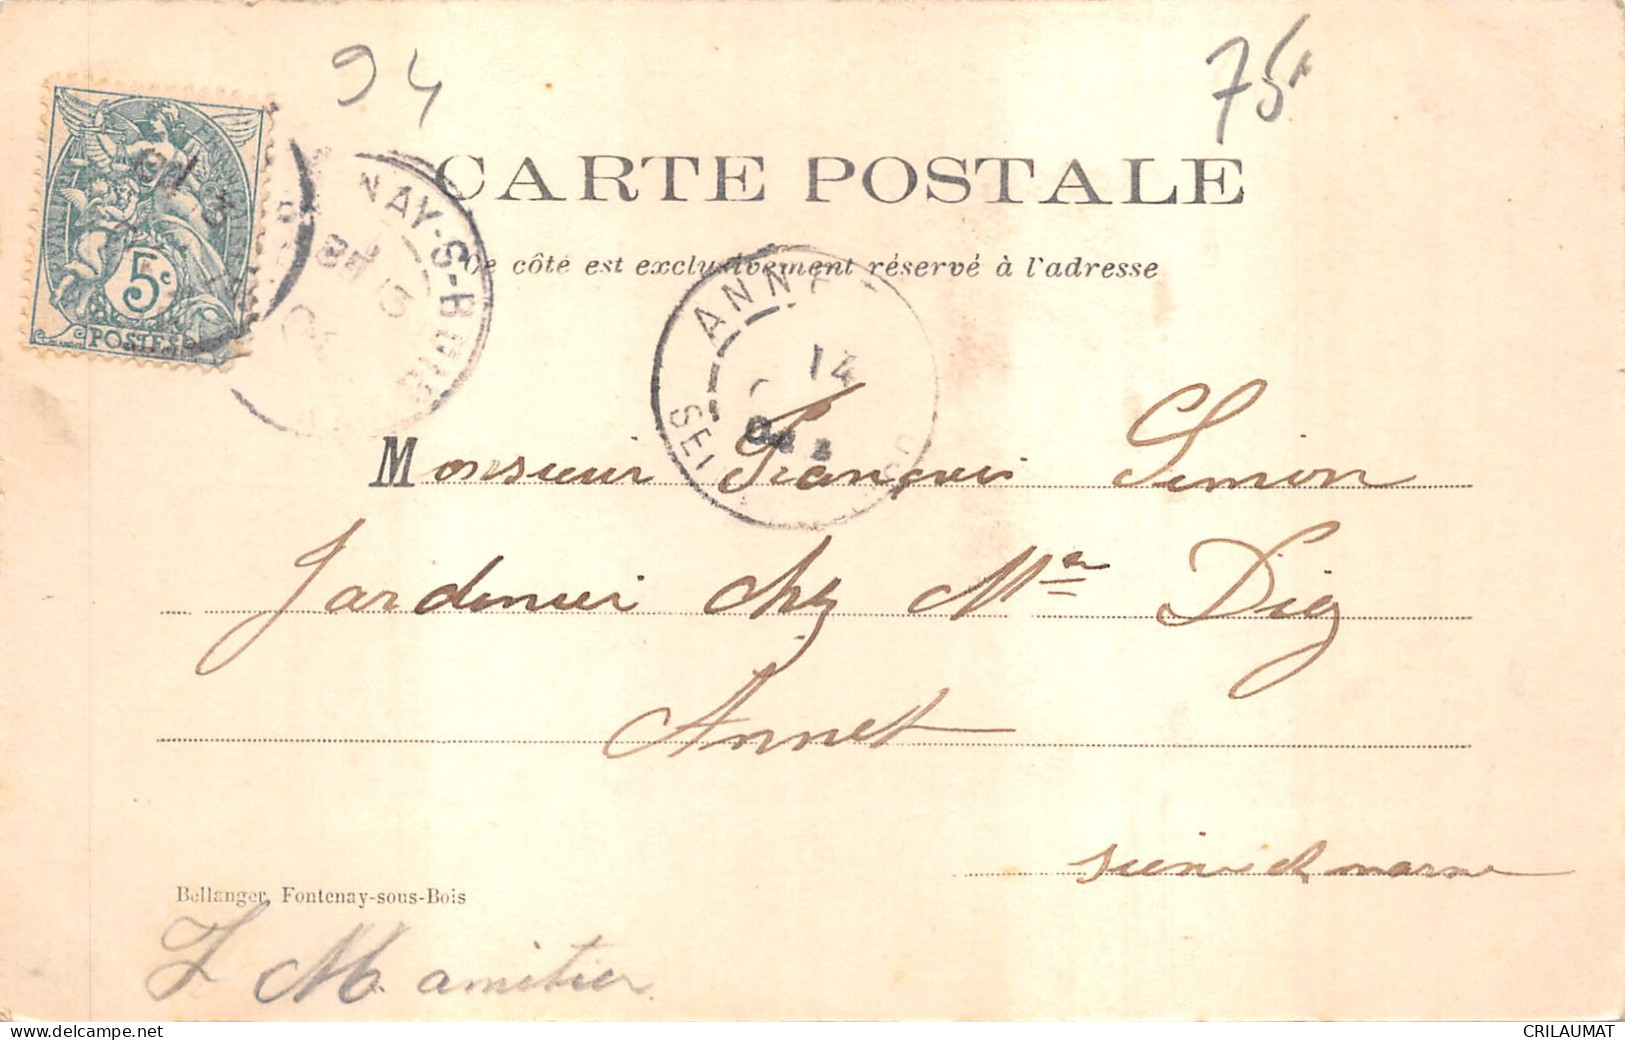 94
75f
5c
POSTES
NAY-S-BOIS
CARTE POSTALE
Ce côté est exclusivement réservé à l'adresse
ANNET
14
SEI
Monsieur François Simon
Jardinier chez Mr Diez
Annet
Seine et marne
Bellanger, Fontenay-sous-Bois
amitier
CRILAUMAT